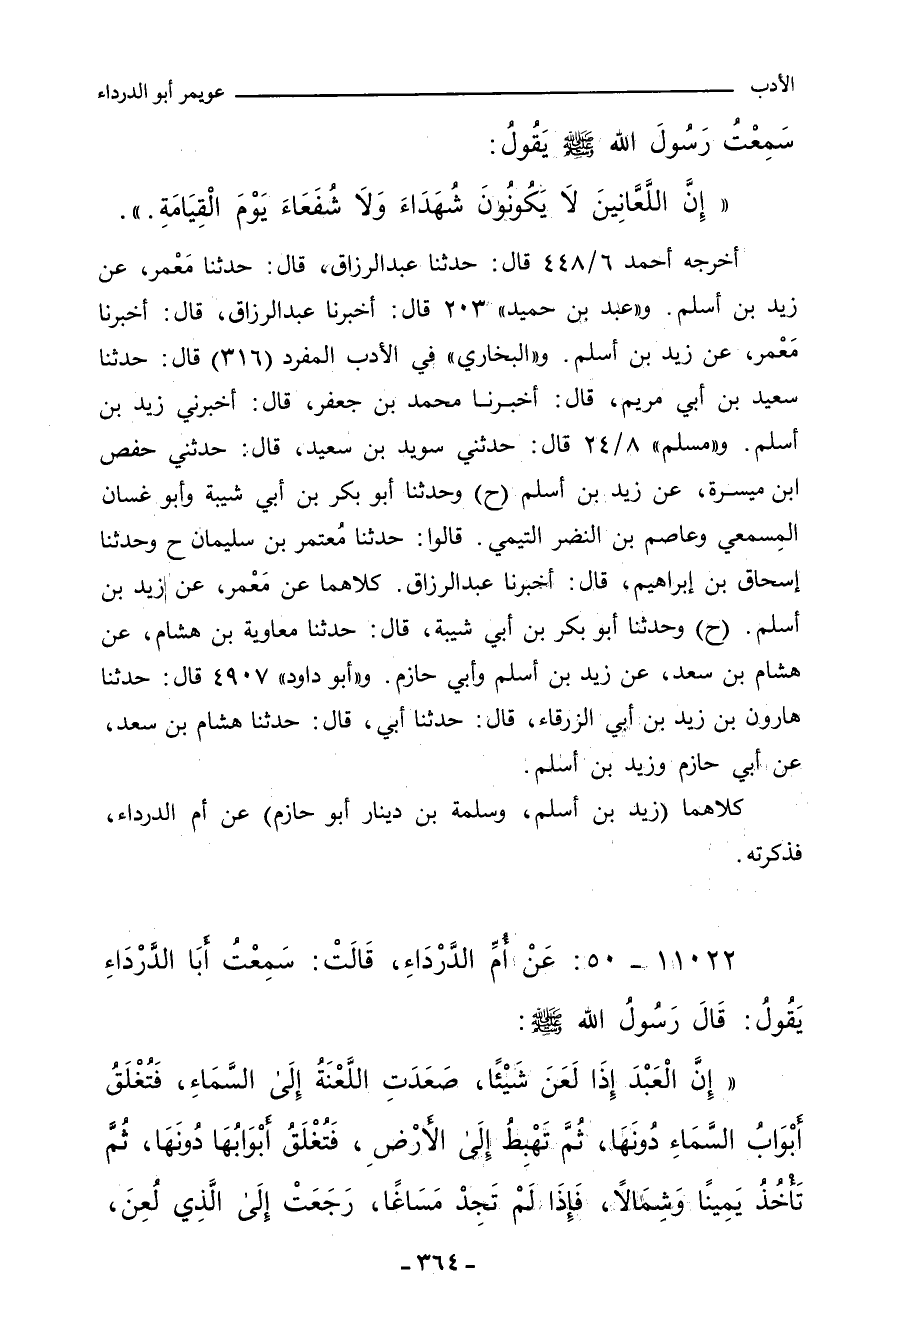 الأدب ــــــــــــــــ عويمر أبو الدرداء
سَمِعْتُ رَسُولَ الله ﷺ يَقُولُ:
« إِنَّ اللَّعَّانِينَ لَا يَكُونُونَ شُهَدَاءَ وَلَا شُفَعَاءَ يَوْمَ الْقِيَامَةِ. ».
أخرجه أحمد ٤٤٨/٦ قال: حدثنا عبدالرزاق، قال: حدثنا مَعْمر، عن
زيد بن أسلم. و«عبد بن حميد» ٢٠٣ قال: أخبرنا عبدالرزاق، قال: أخبرنا
مَعْمر، عن زيد بن أسلم. و«البخاري» في الأدب المفرد (٣١٦) قال: حدثنا
سعيد بن أبي مريم، قال: أخبرنا محمد بن جعفر، قال: أخبرني زيد بن
أسلم. و«مسلم» ٢٤/٨ قال: حدثني سويد بن سعيد، قال: حدثني حفص
ابن ميسرة، عن زيد بن أسلم (ح) وحدثنا أبو بكر بن أبي شيبة وأبو غسان
المِسمعي وعاصم بن النضر التيمي. قالوا: حدثنا مُعتمر بن سليمان ح وحدثنا
إسحاق بن إبراهيم، قال: أخبرنا عبدالرزاق. كلاهما عن مَعْمر، عن زيد بن
أسلم. (ح) وحدثنا أبو بكر بن أبي شيبة، قال: حدثنا معاوية بن هشام، عن
هشام بن سعد، عن زيد بن أسلم وأبي حازم. و«أبو داود» ٤٩٠٧ قال: حدثنا
هارون بن زيد بن أبي الزرقاء، قال: حدثنا أبي، قال: حدثنا هشام بن سعد،
عن أبي حازم وزيد بن أسلم.
كلاهما (زيد بن أسلم، وسلمة بن دينار أبو حازم) عن أم الدرداء،
فذكرته.
١١٠٢٢ ـ ٥٠: عَنْ أُمِّ الدَّرْدَاءِ، قَالَتْ: سَمِعْتُ أَبَا الدَّرْدَاءِ
يَقُولُ: قَالَ رَسُولُ الله ﷺ:
« إِنَّ الْعَبْدَ إِذَا لَعَنَ شَيْئًا، صَعَدَتِ اللَّعْنَةُ إِلَىٰ السَّمَاءِ، فَتُغْلَقُ
أَبْوَابُ السَّمَاءِ دُونَهَا، ثُمَّ تَهْبِطُ إِلَىٰ الأَرْضِ، فَتُغْلَقُ أَبْوَابُهَا دُونَهَا، ثُمَّ
تَأْخُذُ يَمِينًا وَشِمَالاً، فَإِذَا لَمْ تَجِدْ مَسَاغًا، رَجَعَتْ إِلَىٰ الَّذِي لُعِنَ،
- ٣٦٤ -